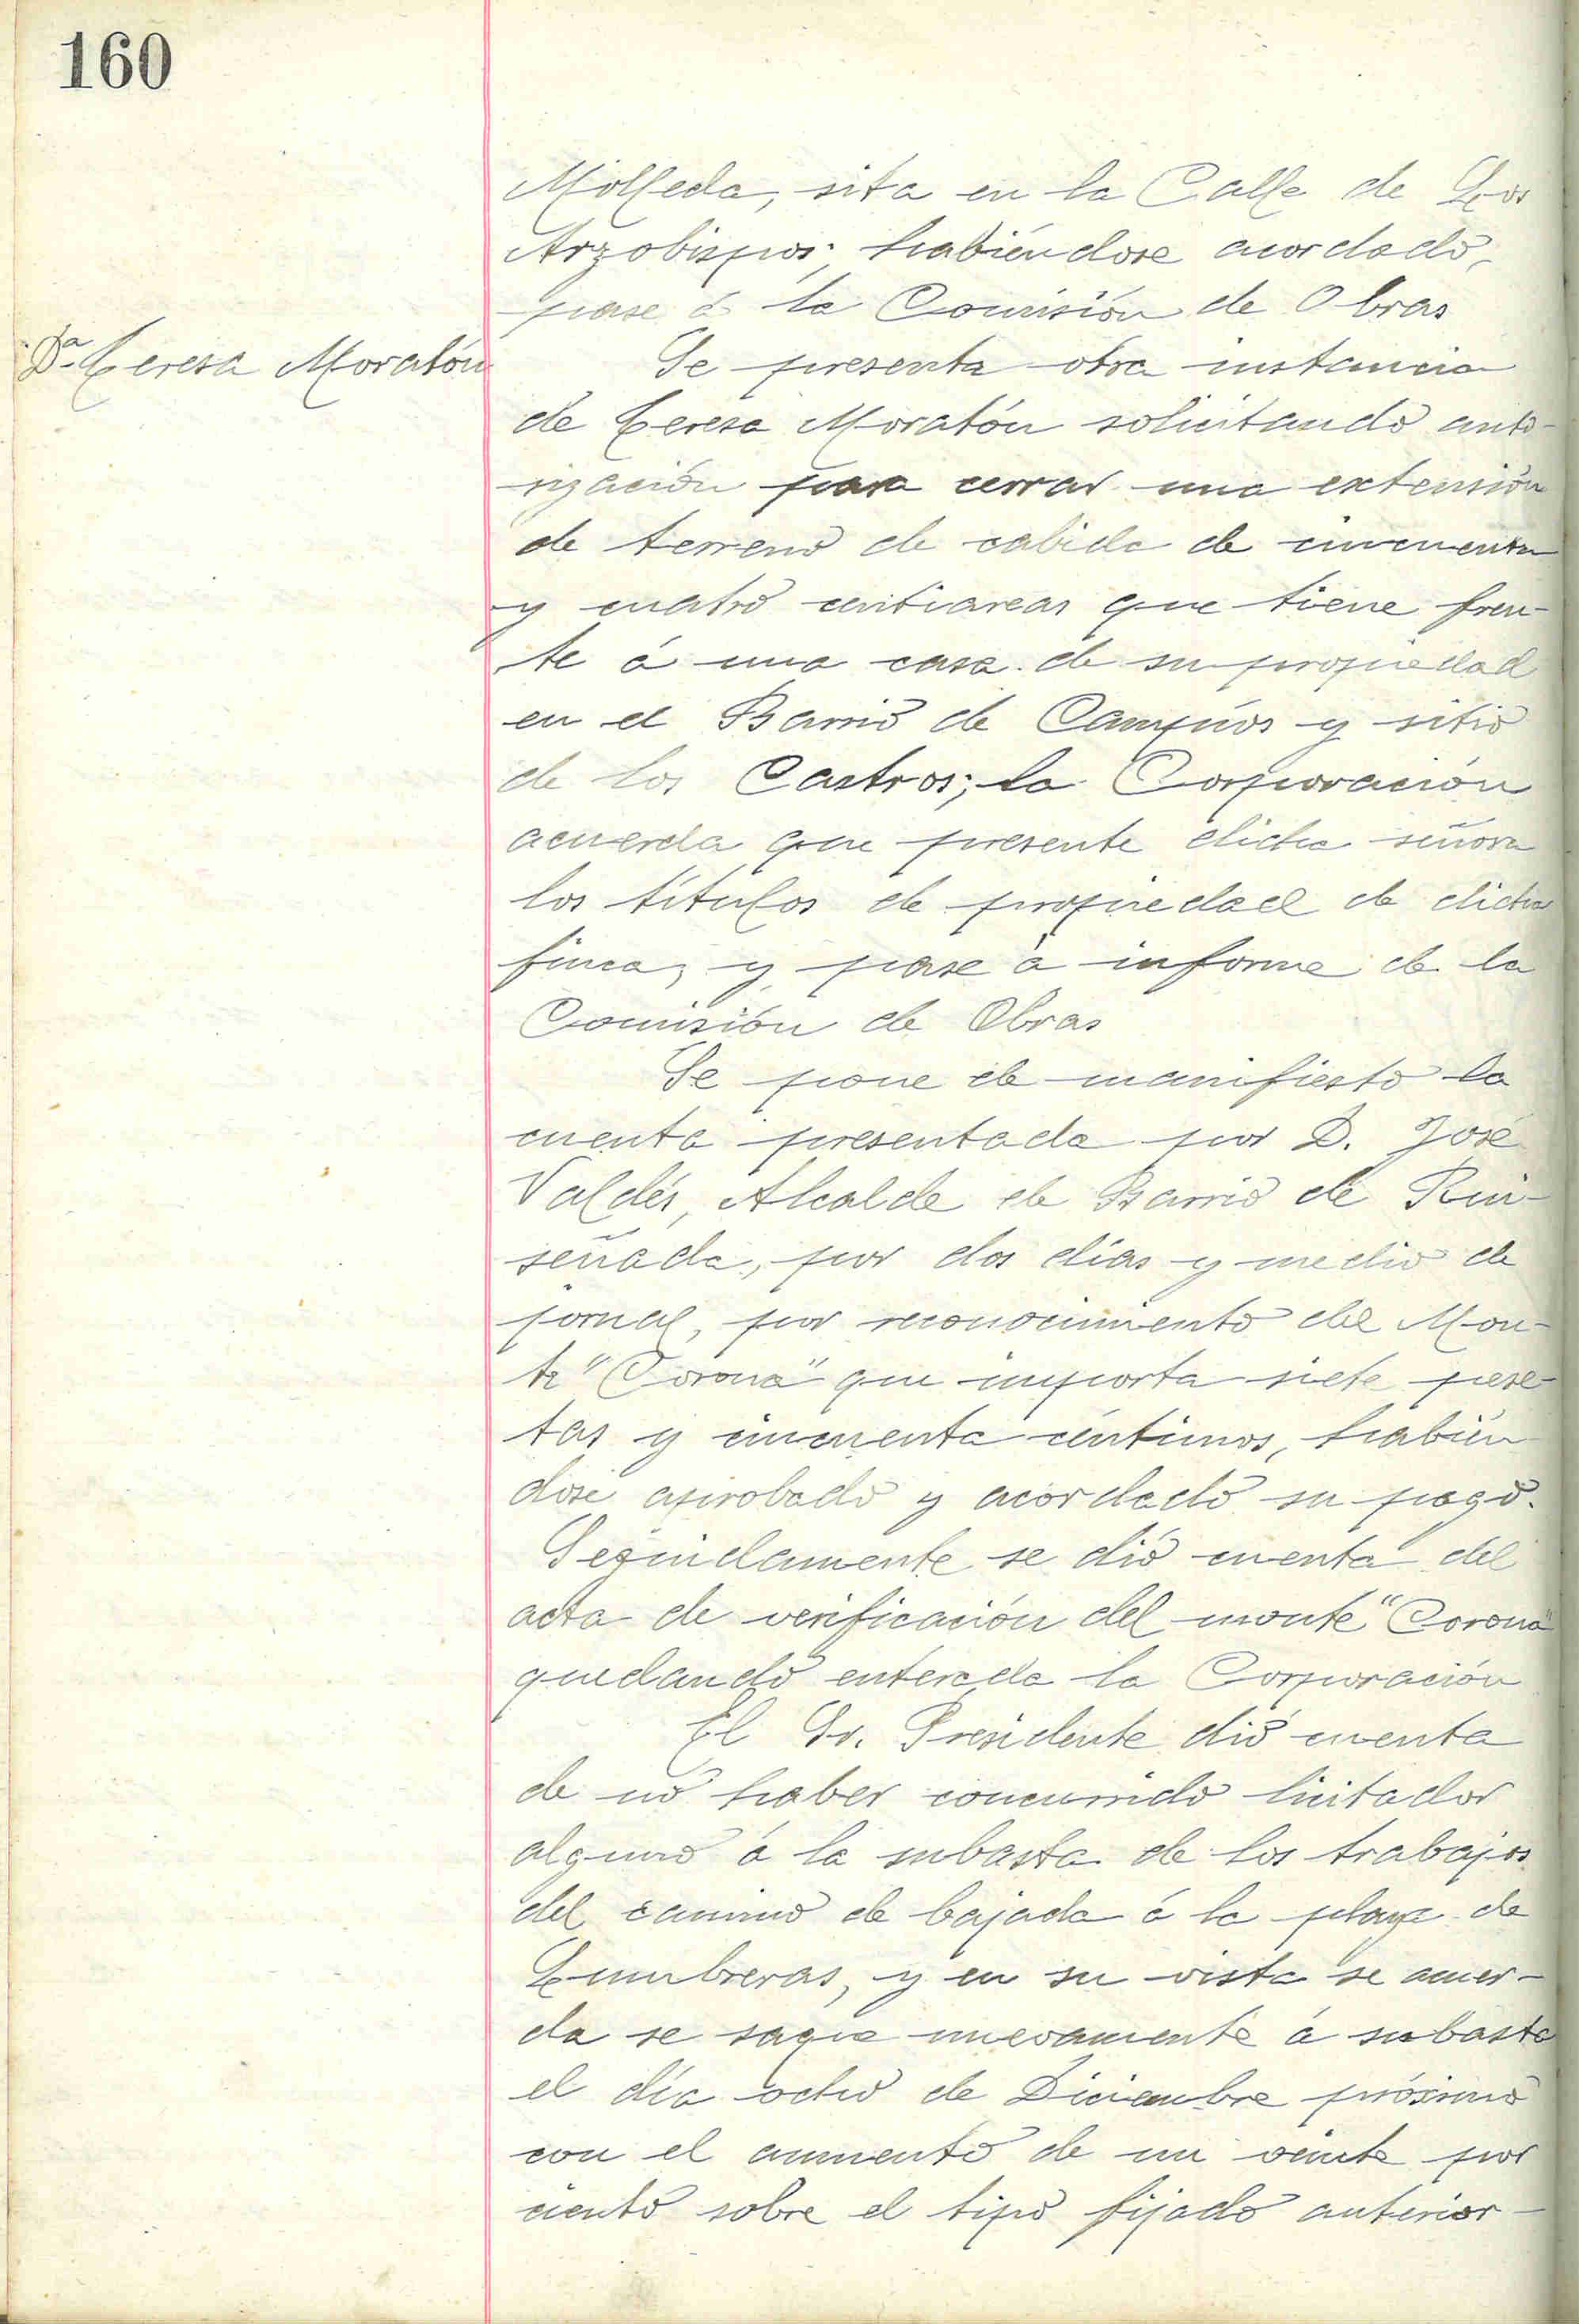 160
Molleda, sita en la Calle de Los
Arzobispos; habiéndose acordado,
pase á la Comisión de Obras
Dª Teresa Moratón
Se presenta otra instancia
de Teresa Moratón solicitando auto-
rización para cerrar una extensión
de terreno de cabida de cincuenta
y cuatro centiareas que tiene fren-
te á una casa de su propiedad
en el Barrio de Campíos y sitio
de los Castros; la Corporación
acuerda que presente dicha señora
los títulos de propiedad de dicha
finca, y pase á informe de la
Comisión de Obras
Se pone de manifiesto la
cuenta presentada por D. José
Valdés, Alcalde de Barrio de Rui-
señada, por dos días y medio de
jornal, por reconocimiento del Mon-
te "Corona" que importa siete pese-
tas y cincuenta céntimos, habién
dose aprobado y acordado su pago.
Seguidamente se dió cuenta del
acta de verificación del monte "Corona"
quedando enterada la Corporación
El Sr. Presidente dió cuenta
de no haber concurrido licitador
alguno á la subasta de los trabajos
del camino de bajada á la playa de
Lumbreras, y en su vista se acuer-
da se saque nuevamente á subasta
el día ocho de Diciembre próximo
con el aumento de un veinte por
ciento sobre el tipo fijado anterior-